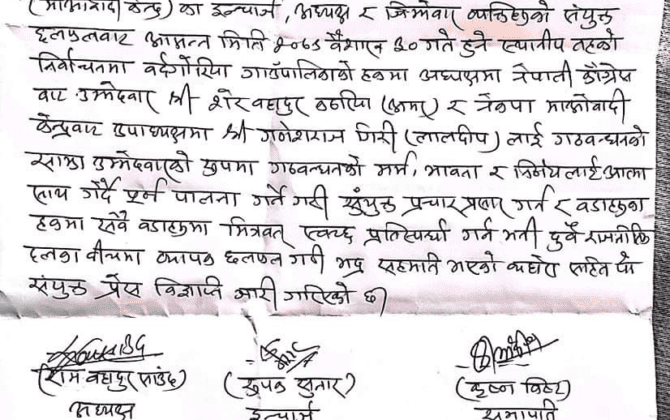 (माओवादी केन्द्र) का इन्चार्ज, अध्यक्ष र जिम्मेवार व्यक्तिहरुको संयुक्त
छलफलबाट आसन्न मिति २०७९ बैशाख ३० गते हुने स्थानीय तहको
निर्वाचनमा बर्दगोरिया गाउँपालिकाको हकमा अध्यक्षमा नेपाली काँग्रेस
बाट उम्मेदवार श्री शेर बहादुर कठरिया (अमर) र नेकपा माओवादी
केन्द्रबाट उपाध्यक्षमा श्री गणेशराज गिरी (लालदीप) लाई गठबन्धनको
साझा उम्मेदवारको रुपमा गठबन्धनको मर्म, भावना र निर्णयलाई आत्म
साथ गर्दै पूर्ण पालना गर्ने गरी संयुक्त प्रचार प्रसार गर्न र वडाहरुका
हकमा सबै वडाहरुमा मित्रवत् स्वच्छ प्रतिस्पर्धा गर्न भनी दुवै राजनीतिक
दलका बीचमा व्यापक छलफल गरी भद्र सहमति भएको व्यहोरा सहित यो
संयुक्त प्रेस विज्ञप्ति जारी गरिएको छ।
(राम बहादुर साउद) (रुपक सुनार) (कृष्ण विष्ट)
अध्यक्ष इन्चार्ज सभापति